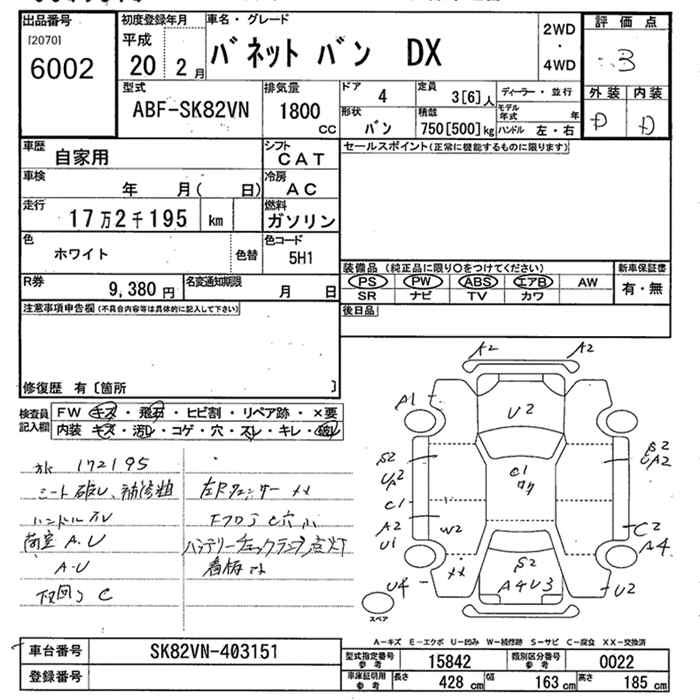 出品番号 初度登録年月 車名・グレード 2WD ・ 4WD 評価点
[2070] 平成
6002 20 2月 バネット バン DX 3
外装 内装
D D
型式 排気量 ドア 4 定員 3[6]人 ディーラー・並行
ABF-SK82VN 1800cc 形状 バン 積載 750[500]kg モデル年式 年
ハンドル 左・右
車歴 自家用 シフト CAT セールスポイント(正常に機能するものに限ります)
車検 年 月( 日) 冷房 AC
走行 17万2千195 km 燃料 ガソリン
色 ホワイト 色替 色コード 5H1
装備品 (純正品に限り○をつけてください) 新車保証書
R券 9,380円 名変通知期限 月 日
PS PW ABS エアB AW 有・無
SR ナビ TV カワ
注意事項申告欄(不具合内容等は具体的に記入して下さい) 後日品
修復歴 有〔箇所 〕
検査員記入欄 FW キズ・飛石・ヒビ割・リペア跡・×要
内装 キズ・汚れ・コゲ・穴・スレ・キレ・破レ
A2 A2
A1
U2
S2 UA2
C1
A2 U1
C1
W2
XX
U4
S2
A4U3
S2 UA2
C2
A4
U2
スペア
172195
シート破レ、補修粗 左Fフェンダー XX
ハンドルスレ
荷室 A.U
バッテリーチェックランプ点灯
A.U 看板コン
下回り C
A-キズ E-エクボ U-凹み W-補修跡 S-サビ C-腐食 XX-交換済
車台番号 SK82VN-403151 型式指定番号 参考 15842 類別区分番号 参考 0022
登録番号 車庫証明用 参考 長さ 428cm 幅 163cm 高さ 185cm